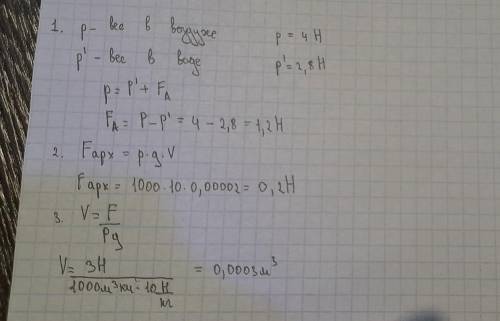 1. p - вес в воздухе p = 4 Н
p' - вес в воде p' = 2,8 Н
p = p' + F_A
F_A = P - p' = 4 - 2,8 = 1,2 Н
2. Fарх = p · g · V
Fарх = 1000 · 10 · 0,00002 = 0,2 Н
3. V = F / pg
V = 3Н / 1000 м³ кг · 10 Н/кг = 0,0003 м³